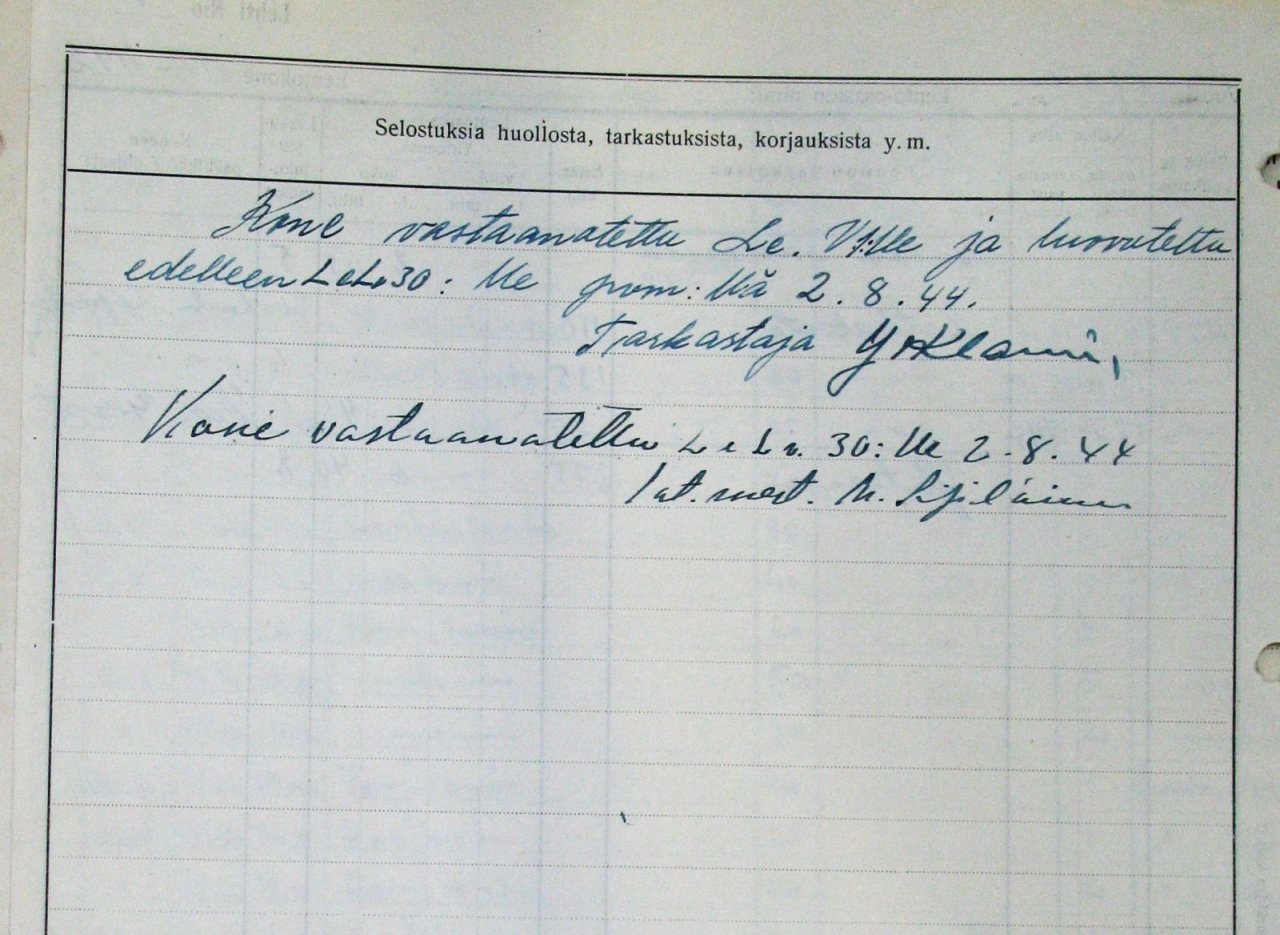 Selostuksia huollosta, tarkastuksista, korjauksista y. m.
Kone vastaanotettu Le. V1:lle ja luovutettu
edelleen LeLv30: lle pvm: llä 2. 8. 44.
Tarkastaja
Kone vastaanotettu LeLv. 30: lle 2. 8. 44
mest.